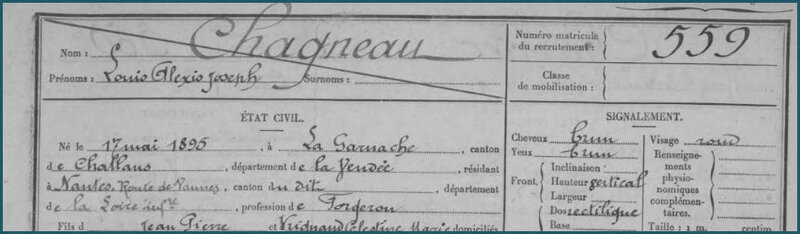 Nom : Chagneau
Prénoms : Louis Alexis Joseph Surnoms :
Numéro matricule du recrutement : 559
Classe de mobilisation :
ÉTAT CIVIL.
Né le 17 mai 1895, à La Garnache, canton
de Challans, département de la Vendée, résidant
à Nantes, Route de Vannes, canton du dit, département
de la Loire infre, profession de Forgeron
Fils d Jean Pierre et Célestine Marie domiciliés
SIGNALEMENT.
Cheveux brun Visage rond
Yeux brun
Front. Inclinaison
Hauteur vertical
Largeur
Dos rectiligne
Base
Renseignements physionomiques complémentaires.
Taille : 1 m. centim.